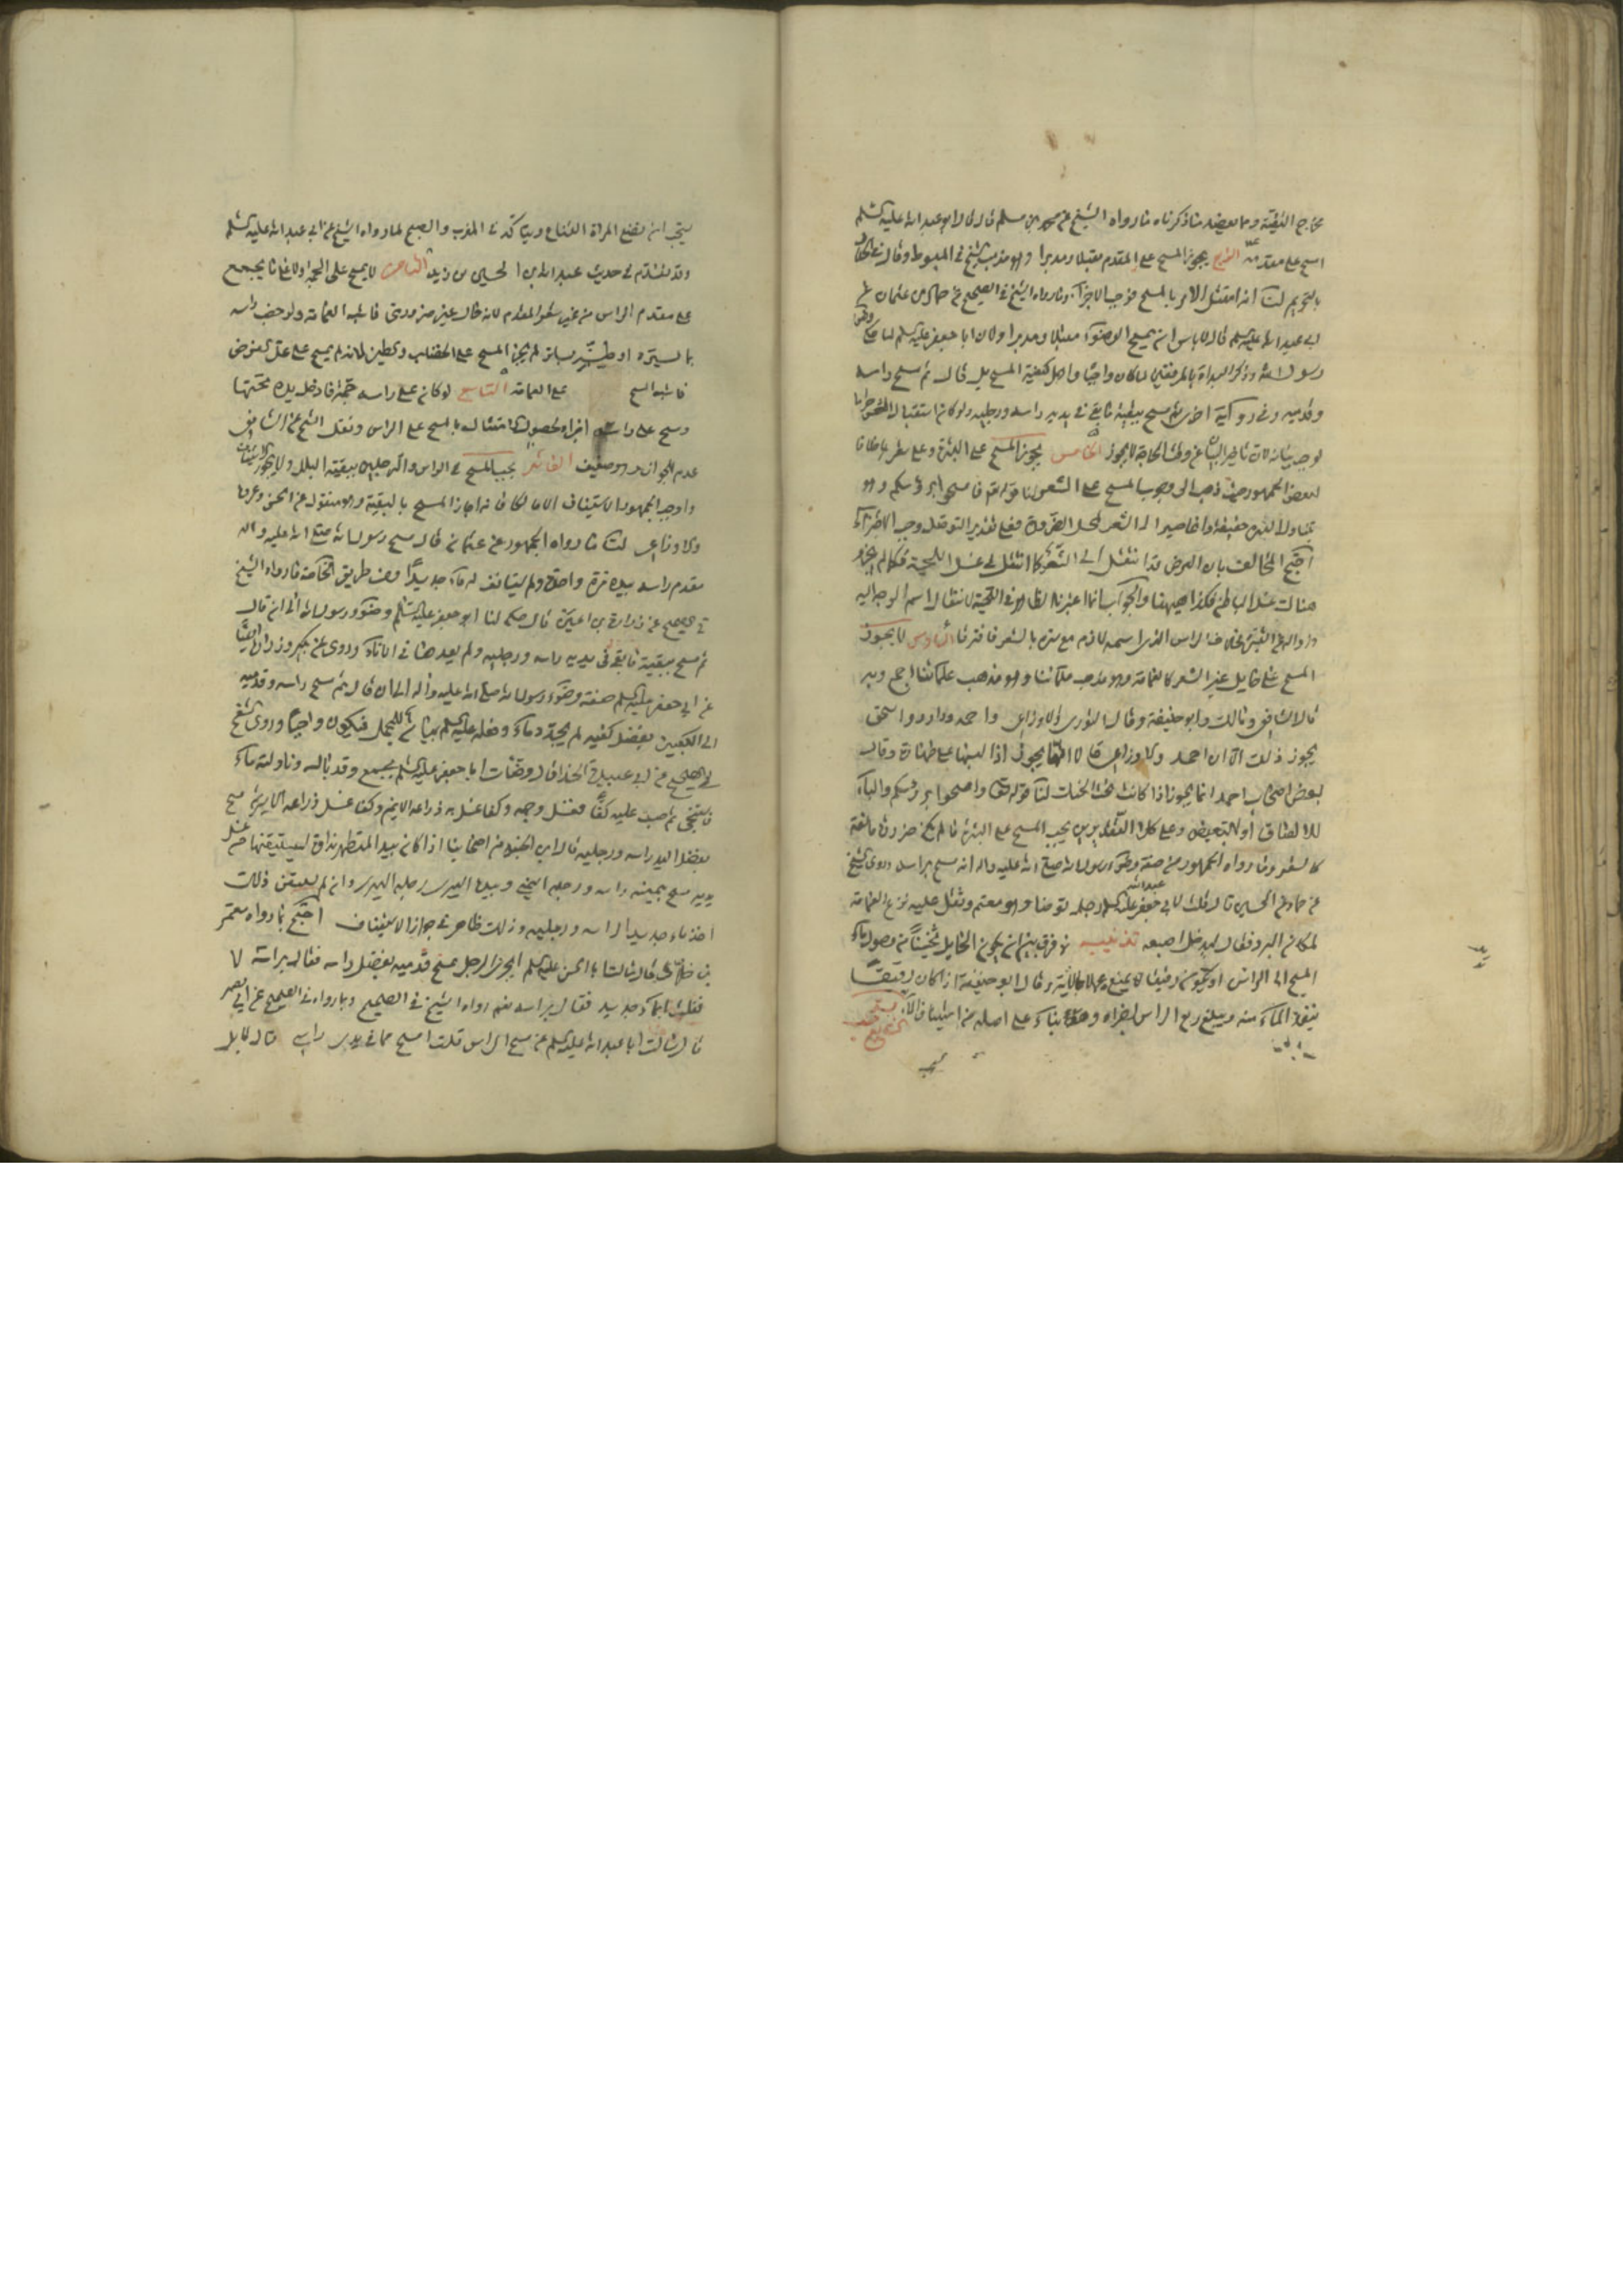 مخرج التقية ومما يعضد ما ذكرناه ما رواه الشيخ عن محمد بن مسلم قال قال ابو عبد الله عليه السلم
امسح على مقدمه الرابع يجوز المسح على المقدم مقبلا ومدبرا وهو مذهب الشيخ في المبسوط وقال في
بالتحريم لنا انه امتثل الامر بالمسح فوجب الاجزاء وما رواه الشيخ في الصحيح عن حماد بن عثمان عن
ابي عبد الله عليه السلم قال لا باس ان يمسح الوضوء مقبلا ومدبرا ولان ابا جعفر عليه السلم لما حكى
رسول الله وذكر البداة بالمرفقين لما كان واجبا واهل كيفية المسح بل قال ثم مسح راسه
وقدميه وفي رواية اخرى ثم مسح ببقية ما بقي في يديه راسه ورجليه ولو كان استقبال الشعر
لوجب بيانه لان تاخير البيان عن وقت الحاجة لا يجوز الخامس يجوز المسح على البشرة وعلى شعرها خلافا
لبعض الجمهور حيث ذهب الى وجوب المسح على الشعر لنا قوله تعم فامسحوا برؤسكم وهو
يتناول البشرة حقيقة وانما صير الى الشعر لمحل الضرورة فعلى تقدير التوصل وجب الاجزاء
احتج المخالف بان الفرض قد انتقل الى الشعر كما انتقل في غسل اللحية فكما لم يجز
هناك غسل الباطن فكذا هيهنا والجواب انما اعتبرنا الظاهر في اللحية لانتقال اسم الوجه اليه
وزواله عن البشرة بخلاف الراس الذي اسمه لازم مع ستره بالشعر فافترقا السادس لا يجوز
المسح على حايل غير الشعر كالعمامة وهو مذهب علمائنا اجمع وبه
قال الشافعي ومالك وابو حنيفة وقال الثوري والاوزاعي واحمد وداود واسحق
يجوز ذلك الا ان احمد والاوزاعي قالا انما يجوز اذا لبسها على طهارة وقال
بعض اصحاب احمد انما يجوز اذا كانت تحت الحنك لنا قوله تعالى وامسحوا برؤسكم والباء
للالصاق او للتبعيض وعلى كلا التقديرين يجب المسح على البشرة ما لم يكن ضرورة مانعة
كالشعر وما رواه الجمهور من صفة وضوء رسول الله صلى الله عليه واله انه مسح براسه وروى الشيخ
عن حماد عن الحسين قال قلت لابي عبد الله عليه السلم رجل توضا وهو معتم وثقل عليه نزع العمامة
لمكان البرد فقال ليدخل اصبعه تذنيب لا فرق بين ان يكون الحايل ثخينا يمنع وصول ماء
المسح الى الراس او يكون رقيقا لا يمنع وقال ابو حنيفة اذا كان رقيقا
ينفذ الماء منه ويبلغ ربع الراس اجزاه وهذا بناء على اصله من استيناف الماء
يستحب
يستحب ان تضع المراة القناع ويتاكد في المغرب والصبح لما رواه الشيخ عن ابي عبد الله عليه السلم
وقد تقدم في حديث عبد الله بن الحسين بن زيد الثامن لا يمسح على الجمة ولا على ما يجمع
على مقدم الراس من غير شعر المقدم لانه حال عليه من فوق فاشبه العمامة ولو خضب راسه
بما يستره او طينه بساتر لم يجز المسح على الخضاب والطين لانه لم يمسح على محل الفرض
فاشبه المسح على العمامة التاسع لو كان على راسه جمة فادخل يده تحتها
ومسح على راسه اجزاه لحصول الامتثال بالمسح على الراس ونقل الشيخ عن الشافعي
عدم الجواز وهو ضعيف العاشر يجب المسح في الراس والرجلين ببقية البلل ولا يجوز الاستيناف
واوجب الجمهور الاستيناف الا مالكا فانه اجاز المسح بالبقية وهو منقول عن الحسن وعروة
والاوزاعي لنا ما رواه الجمهور عن عثمان قال مسح رسول الله صلى الله عليه واله
مقدم راسه بيده مرة واحدة ولم يستانف له ماء جديدا ومن طريق الخاصة ما رواه الشيخ
في الصحيح عن زرارة بن اعين قال حكى لنا ابو جعفر عليه السلم وضوء رسول الله الى ان قال
ثم مسح ببقية ما بقي في يديه راسه ورجليه ولم يعدهما في الاناء وروى عن بكير وزرارة ايضا
عن ابي جعفر عليه السلم صفة وضوء رسول الله صلى الله عليه واله الى ان قال ثم مسح راسه وقدميه
الى الكعبين بفضل كفيه لم يجدد ماء وفعله عليه السلم بيان للمجمل فيكون واجبا وروى الشيخ
في الصحيح عن ابي عبيدة الحذاء قال وضات ابا جعفر عليه السلم بجمع وقد بال وناولته ماء
فاستنجى ثم صببت عليه كفا فغسل وجهه وكفا غسل به ذراعه الايمن وكفا غسل ذراعه الايسر ثم مسح
بفضل اليد راسه ورجليه قال ابن الجنيد من اصحابنا اذا كان بيد المتطهر نداوة يستبقيها من غسل
يديه مسح بيمينه راسه ورجله اليمنى وبيده اليسرى رجله اليسرى وان لم يستبق ذلك
اخذ ماء جديدا لراسه ورجليه وذلك ظاهر في جواز الاستيناف احتج بما رواه معمر
بن خلاد قال سالت ابا الحسن عليه السلم ايجزي الرجل يمسح قدميه بفضل راسه فقال براسه لا
فقلت ابماء جديد فقال براسه نعم رواه الشيخ في الصحيح وبما رواه في الصحيح عن ابي بصير
قال سالت ابا عبد الله عليه السلم عن مسح الراس قلت امسح بما في يدي راسي قال لا بل